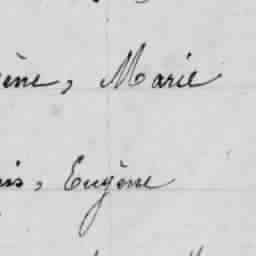 ène, Marie
is, Eugène